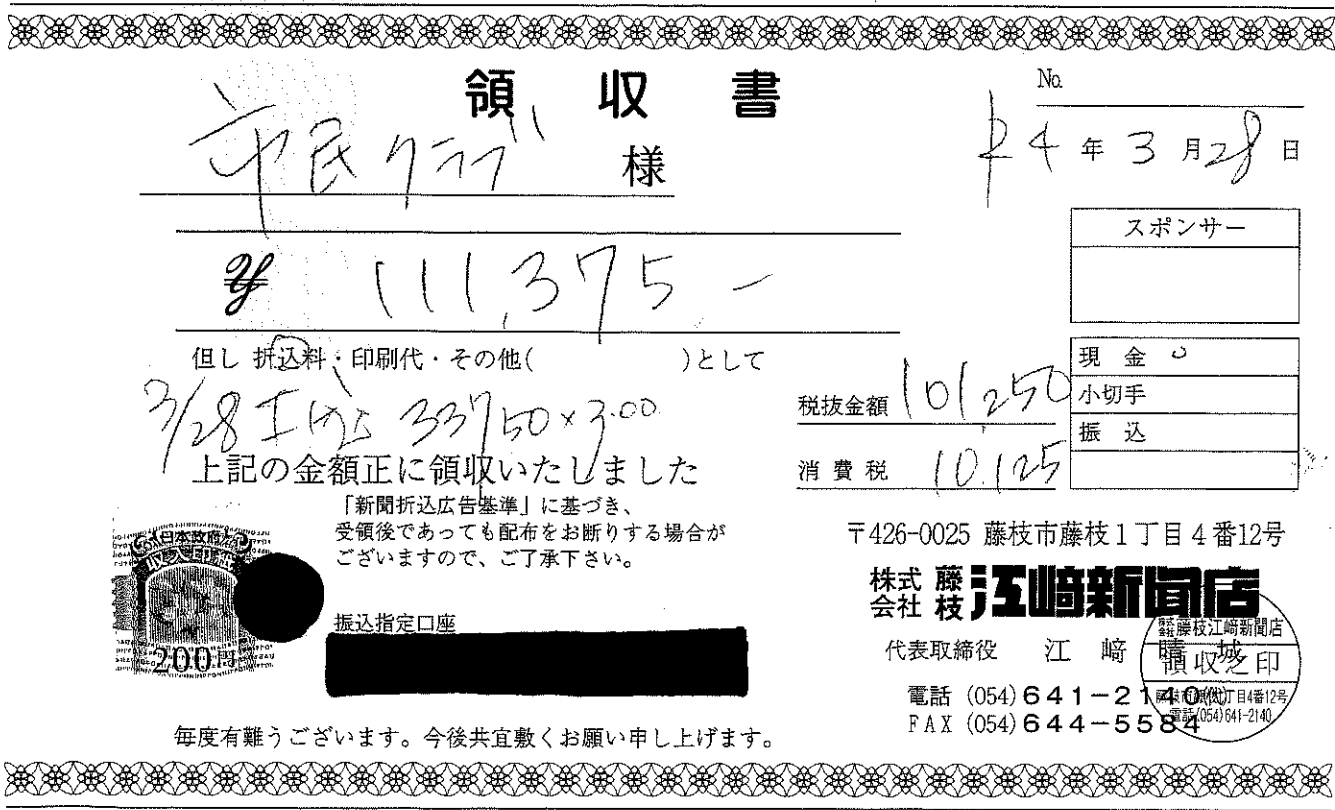 領収書
No.
市民クラブ 様
R4年3月28日
スポンサー
¥ 111,375-
但し 折込料・印刷代・その他( )として
現金
小切手
振込
税抜金額 101,250
3/28 33750×3.00
上記の金額正に領収いたしました
消費税 10,125
「新聞折込広告基準」に基づき、
受領後であっても配布をお断りする場合が
ございますので、ご了承下さい。
日本政府
収入印紙
200円
振込指定口座
〒426-0025 藤枝市藤枝1丁目4番12号
株式会社 藤枝 江﨑新聞店
代表取締役 江﨑晴城
電話 (054)641-2140㈹
FAX (054)644-5584
株式会社藤枝江﨑新聞店
領収之印
藤枝市藤枝1丁目4番12号
電話(054)641-2140
毎度有難うございます。今後共宜敷くお願い申し上げます。